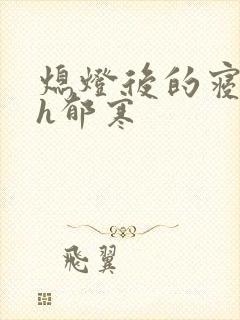 熄燈後的寢
h郁寒
飛翼